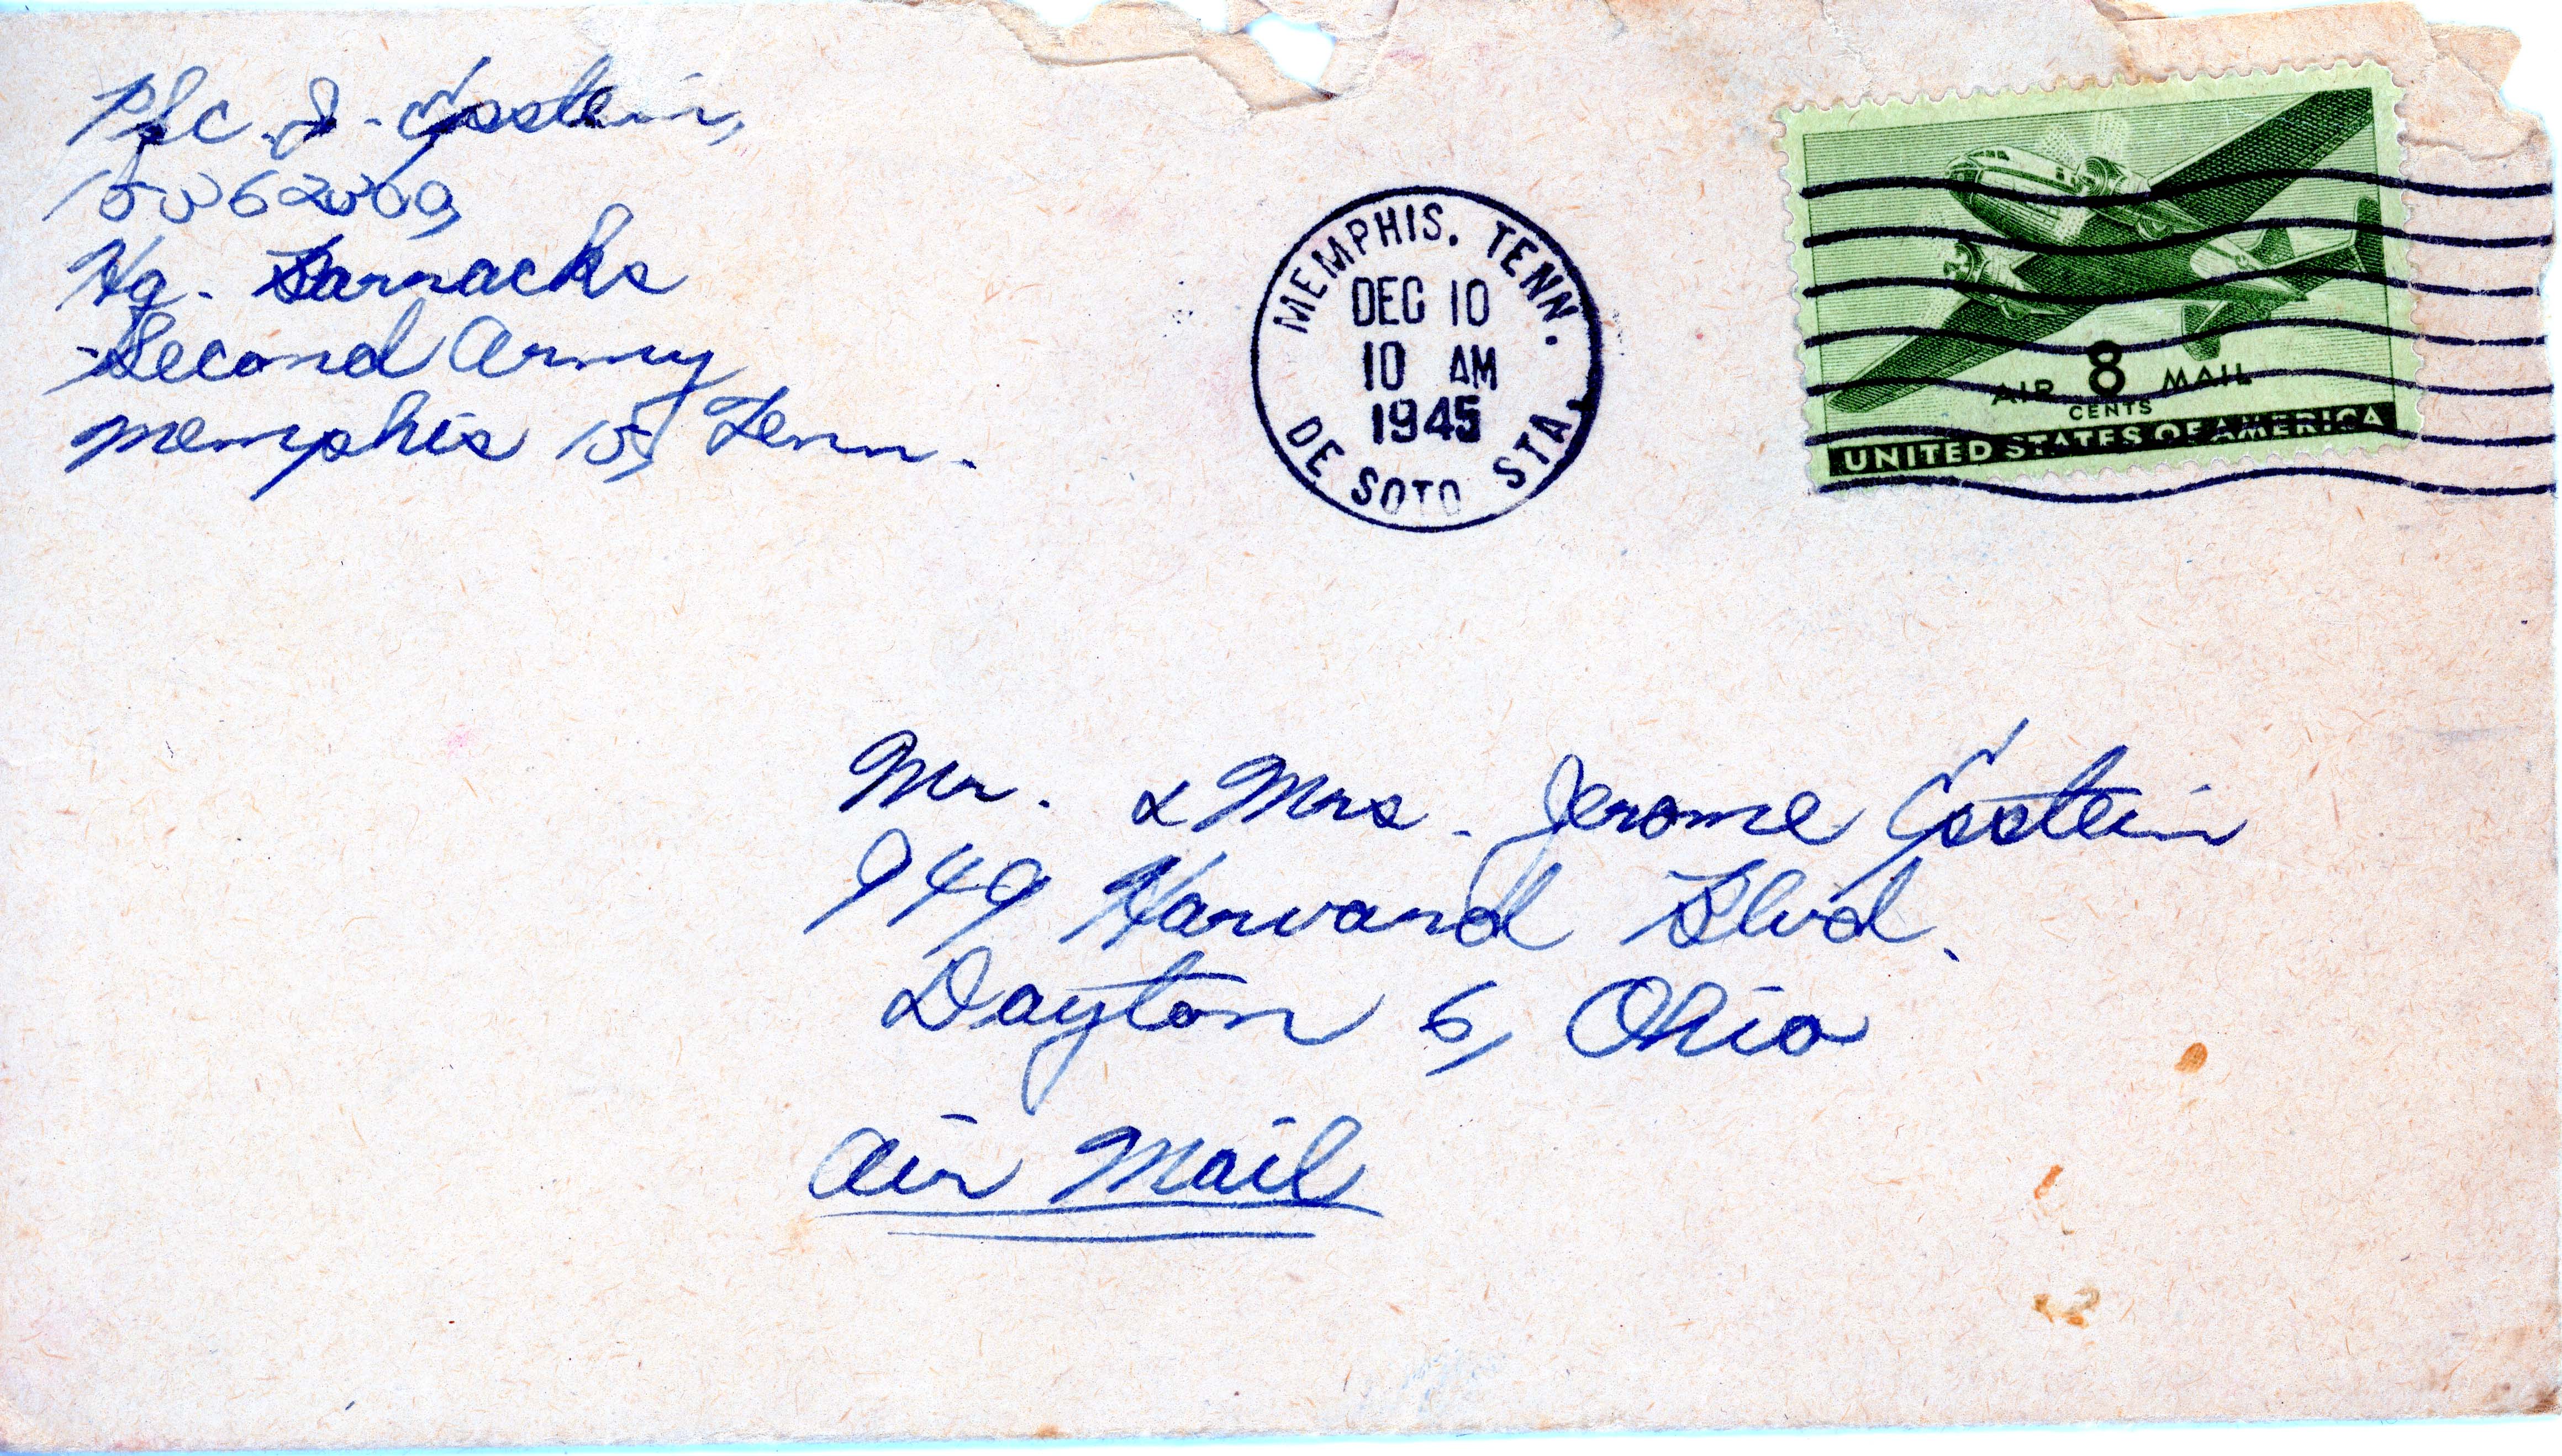 Pfc. J. Epstein,
Hq. Barracks
Second Army
Memphis 15, Tenn.
MEMPHIS, TENN.
DEC 10
10 AM
1945
DE SOTO STA.
AIR 8 MAIL
CENTS
UNITED STATES OF AMERICA
Mr. & Mrs. Jerome Epstein
949 Harvard Blvd.
Dayton 6, Ohio
Air Mail